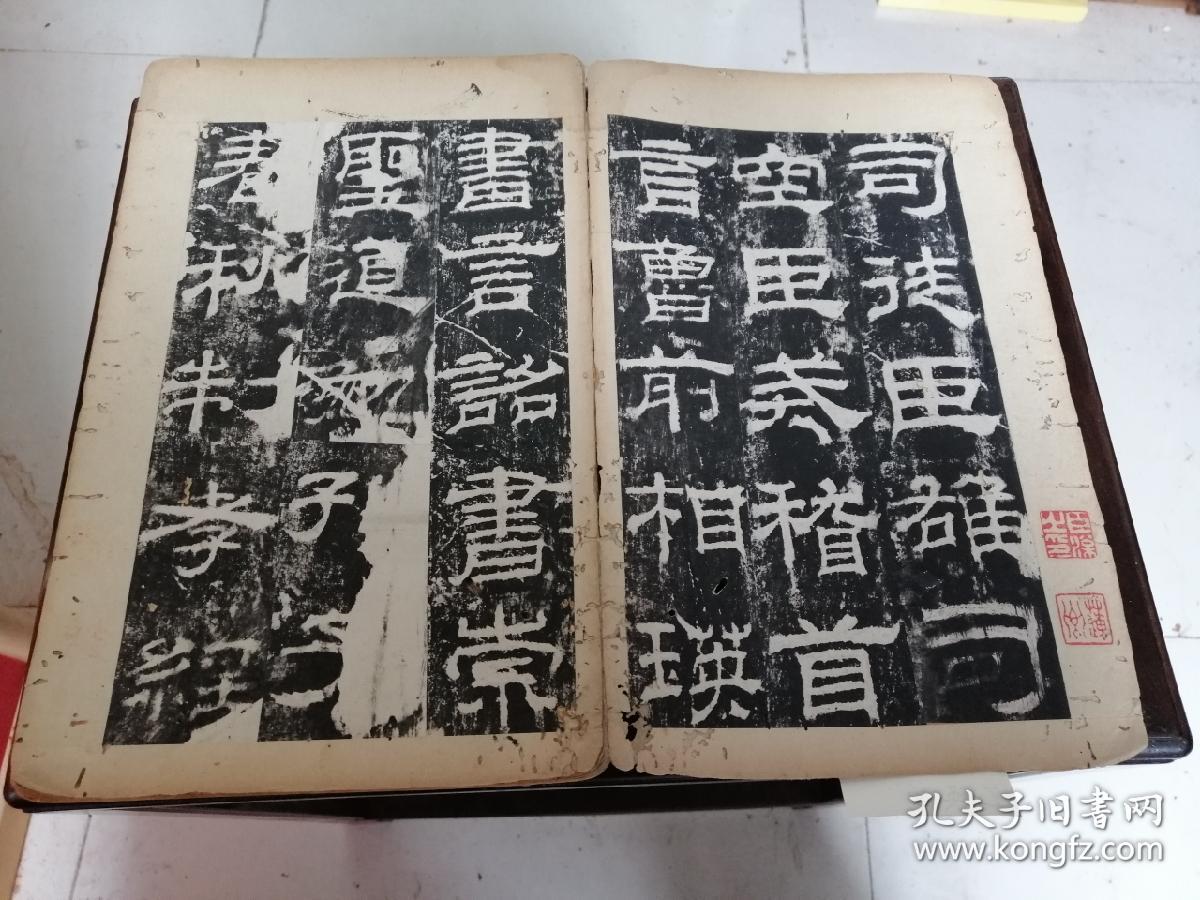 司徒臣雄司
空臣戒稽首
言魯前相瑛
書言詔書崇
聖道子
春秋制孝經
孔夫子旧书网
www.kongfz.com